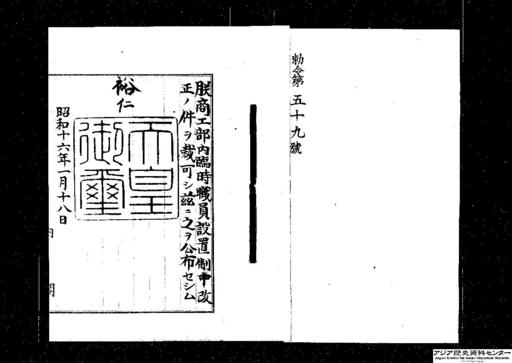 勅令第五十九號
朕商工部内臨時職員設置制中改
正ノ件ヲ裁可シ茲ニ之ヲ公布セシム
裕仁
天皇御璽
昭和十六年一月十八日
内
アジア歴史資料センター
Japan Center for Asian Historical Records